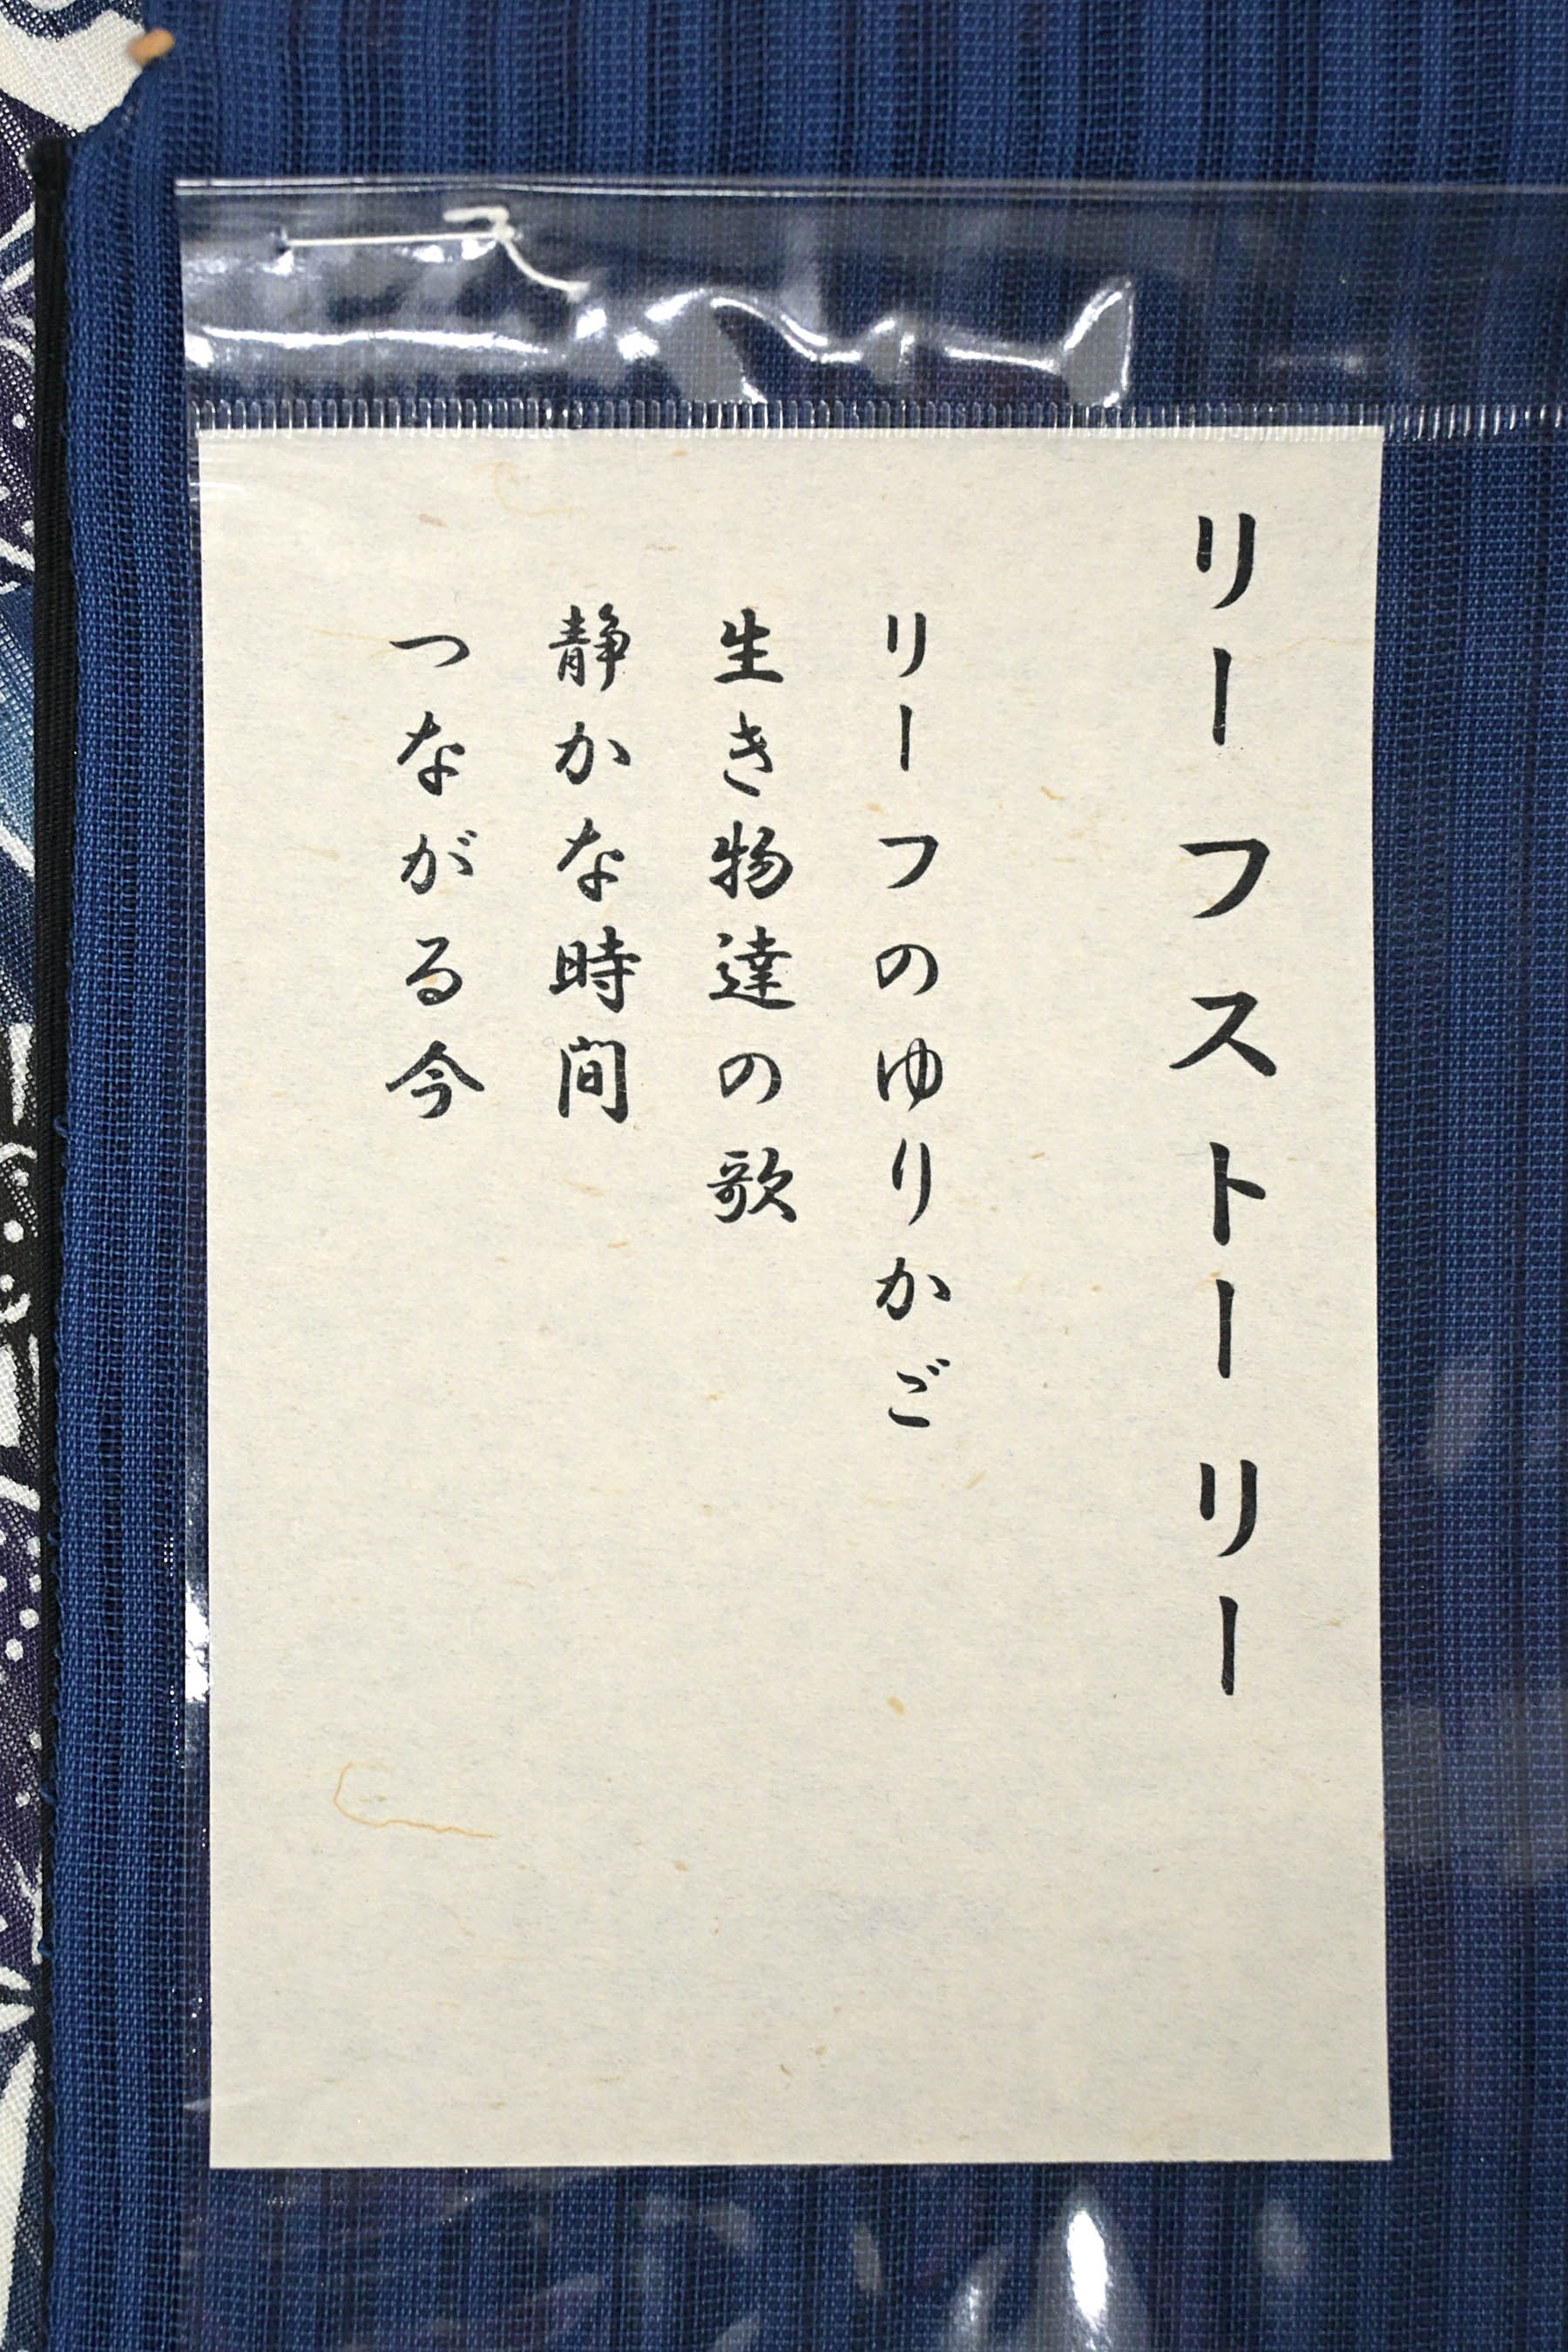 リーフストーリー
リーフのゆりかご
生き物達の歌
静かな時間
つながる今